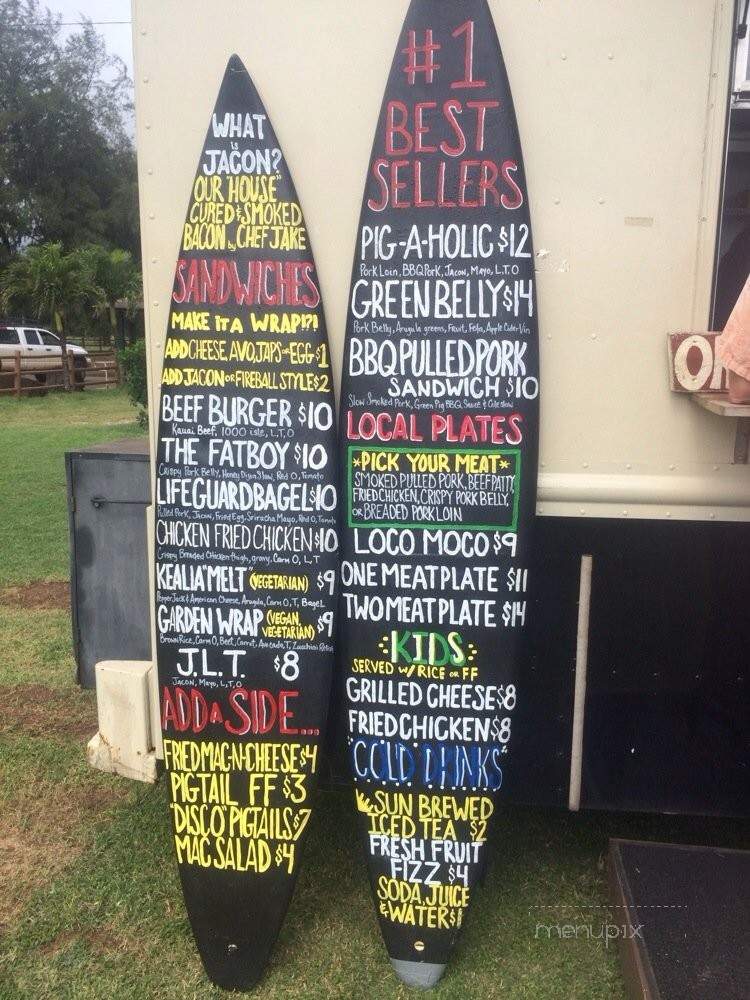 WHAT
is
JACON?
OUR "HOUSE"
CURED & SMOKED
BACON by CHEF JAKE
SANDWICHES
MAKE IT A WRAP!?!
ADD CHEESE, AVO, JAPS OR EGG $1
ADD JACON OR FIREBALL STYLE $2
BEEF BURGER $10
Kauai Beef, 1000 isle, L,T,O
THE FATBOY $10
Crispy Pork Belly, Honey Dijon Slaw, Red O, Tomato
LIFEGUARD BAGEL $10
Pulled Pork, Jacon, Fried Egg, Sriracha Mayo, Red O, Tomato
CHICKEN FRIED CHICKEN $10
Crispy Breaded Chicken thigh, gravy, Carm O, L, T
KEALIA "MELT" (VEGETARIAN) $9
Pepper Jack & American Cheese, Arugula, Carm O, T, Bagel
GARDEN WRAP (VEGAN, VEGETARIAN) $9
Brown Rice, Carm O, Beet, Carrot, Avocado, T, Zucchini
J.L.T. $8
JACON, Mayo, L,T,O
ADD A SIDE...
FRIED MAC-N-CHEESE $4
PIGTAIL FF $3
"DISCO" PIGTAILS $7
MAC SALAD $4
#1
BEST
SELLERS
PIG-A-HOLIC $12
Pork Loin, BBQ Pork, Jacon, Mayo, L.T.O
GREEN BELLY $14
Pork Belly, Arugula greens, Fruit, Feta, Apple Cider Vin
BBQ PULLED PORK
SANDWICH $10
Slow Smoked Pork, Green Pig BBQ Sauce & Cole slaw
LOCAL PLATES
*PICK YOUR MEAT*
SMOKED PULLED PORK, BEEF PATTY,
FRIED CHICKEN, CRISPY PORK BELLY,
OR BREADED PORK LOIN
LOCO MOCO $9
ONE MEAT PLATE $11
TWO MEAT PLATE $14
:KIDS:
SERVED W/ RICE OR FF
GRILLED CHEESE $8
FRIED CHICKEN $8
"COLD DRINKS"
SUN BREWED
ICED TEA $2
FRESH FRUIT
FIZZ $4
SODA, JUICE
& WATER $1
menupix